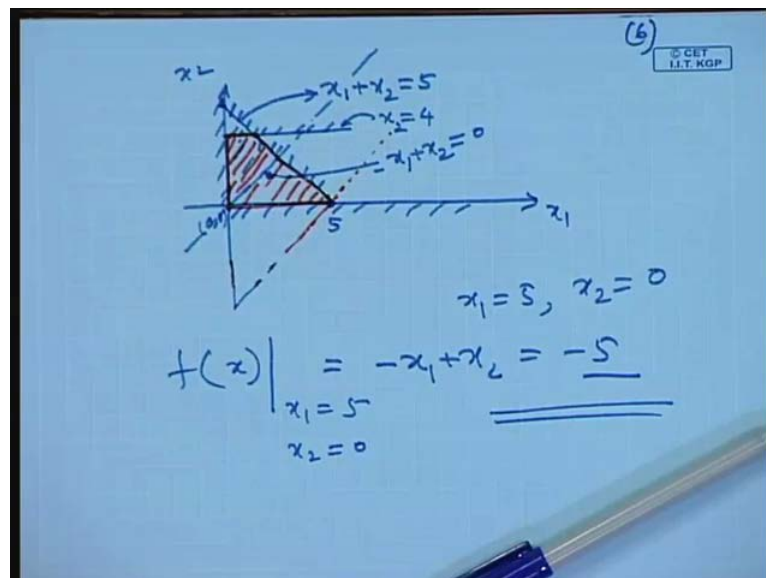 (6)
© CET
I.I.T. KGP
x2
x₁+x₂=5
x₂=4
-x₁+x₂=0
5
x₁
x₁=5, x₂=0
f(x)| = -x₁+x₂ = -5
x₁=5
x₂=0